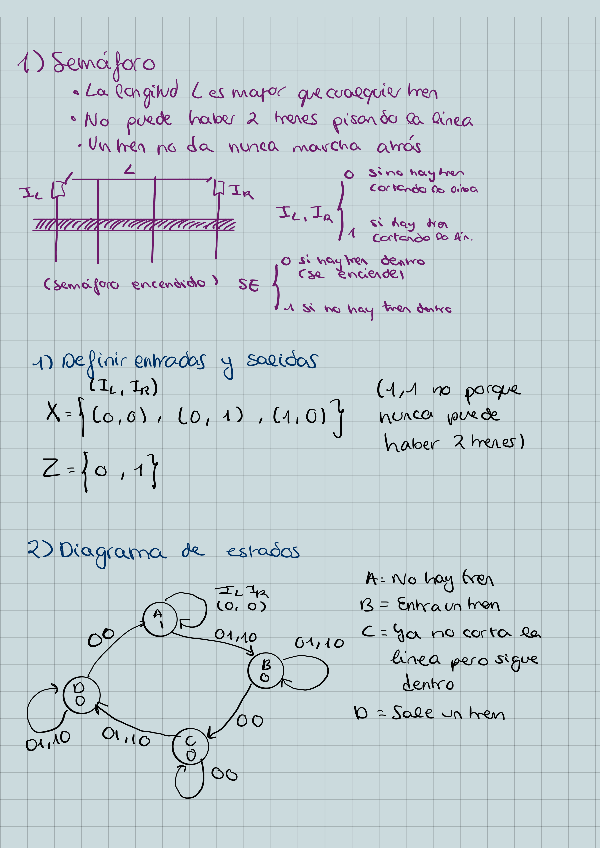 1) Semáforo
• La longitud L es mayor que cualquier tren
• No puede haber 2 trenes pisando la línea
• Un tren no da nunca marcha atrás
L
IL
IR
IL, IR
0 si no hay tren
cortando la línea
1 si hay tren
cortando la lín.
(semáforo encendido) SE
0 si hay tren dentro
(se enciende)
1 si no hay tren dentro
1) Definir entradas y salidas
(IL, IR)
X = {(0,0), (0,1), (1,0)}
(1,1 no porque
nunca puede
haber 2 trenes)
Z = {0, 1}
2) Diagrama de estados
IL IR
(0,0)
A
1
01,10
B
0
01,10
00
C
0
00
01,10
D
0
01,10
00
A = No hay tren
B = Entra un tren
C = Ya no corta la
línea pero sigue
dentro
D = Sale un tren